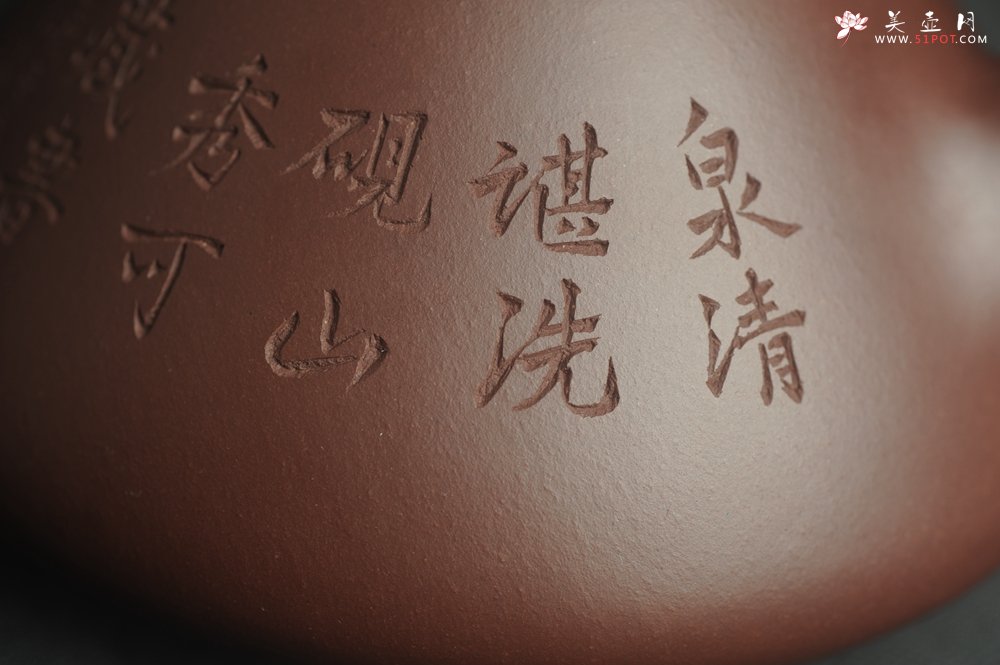 泉清
谌洗
硯山
秀可
美壶网
WWW.51POT.COM